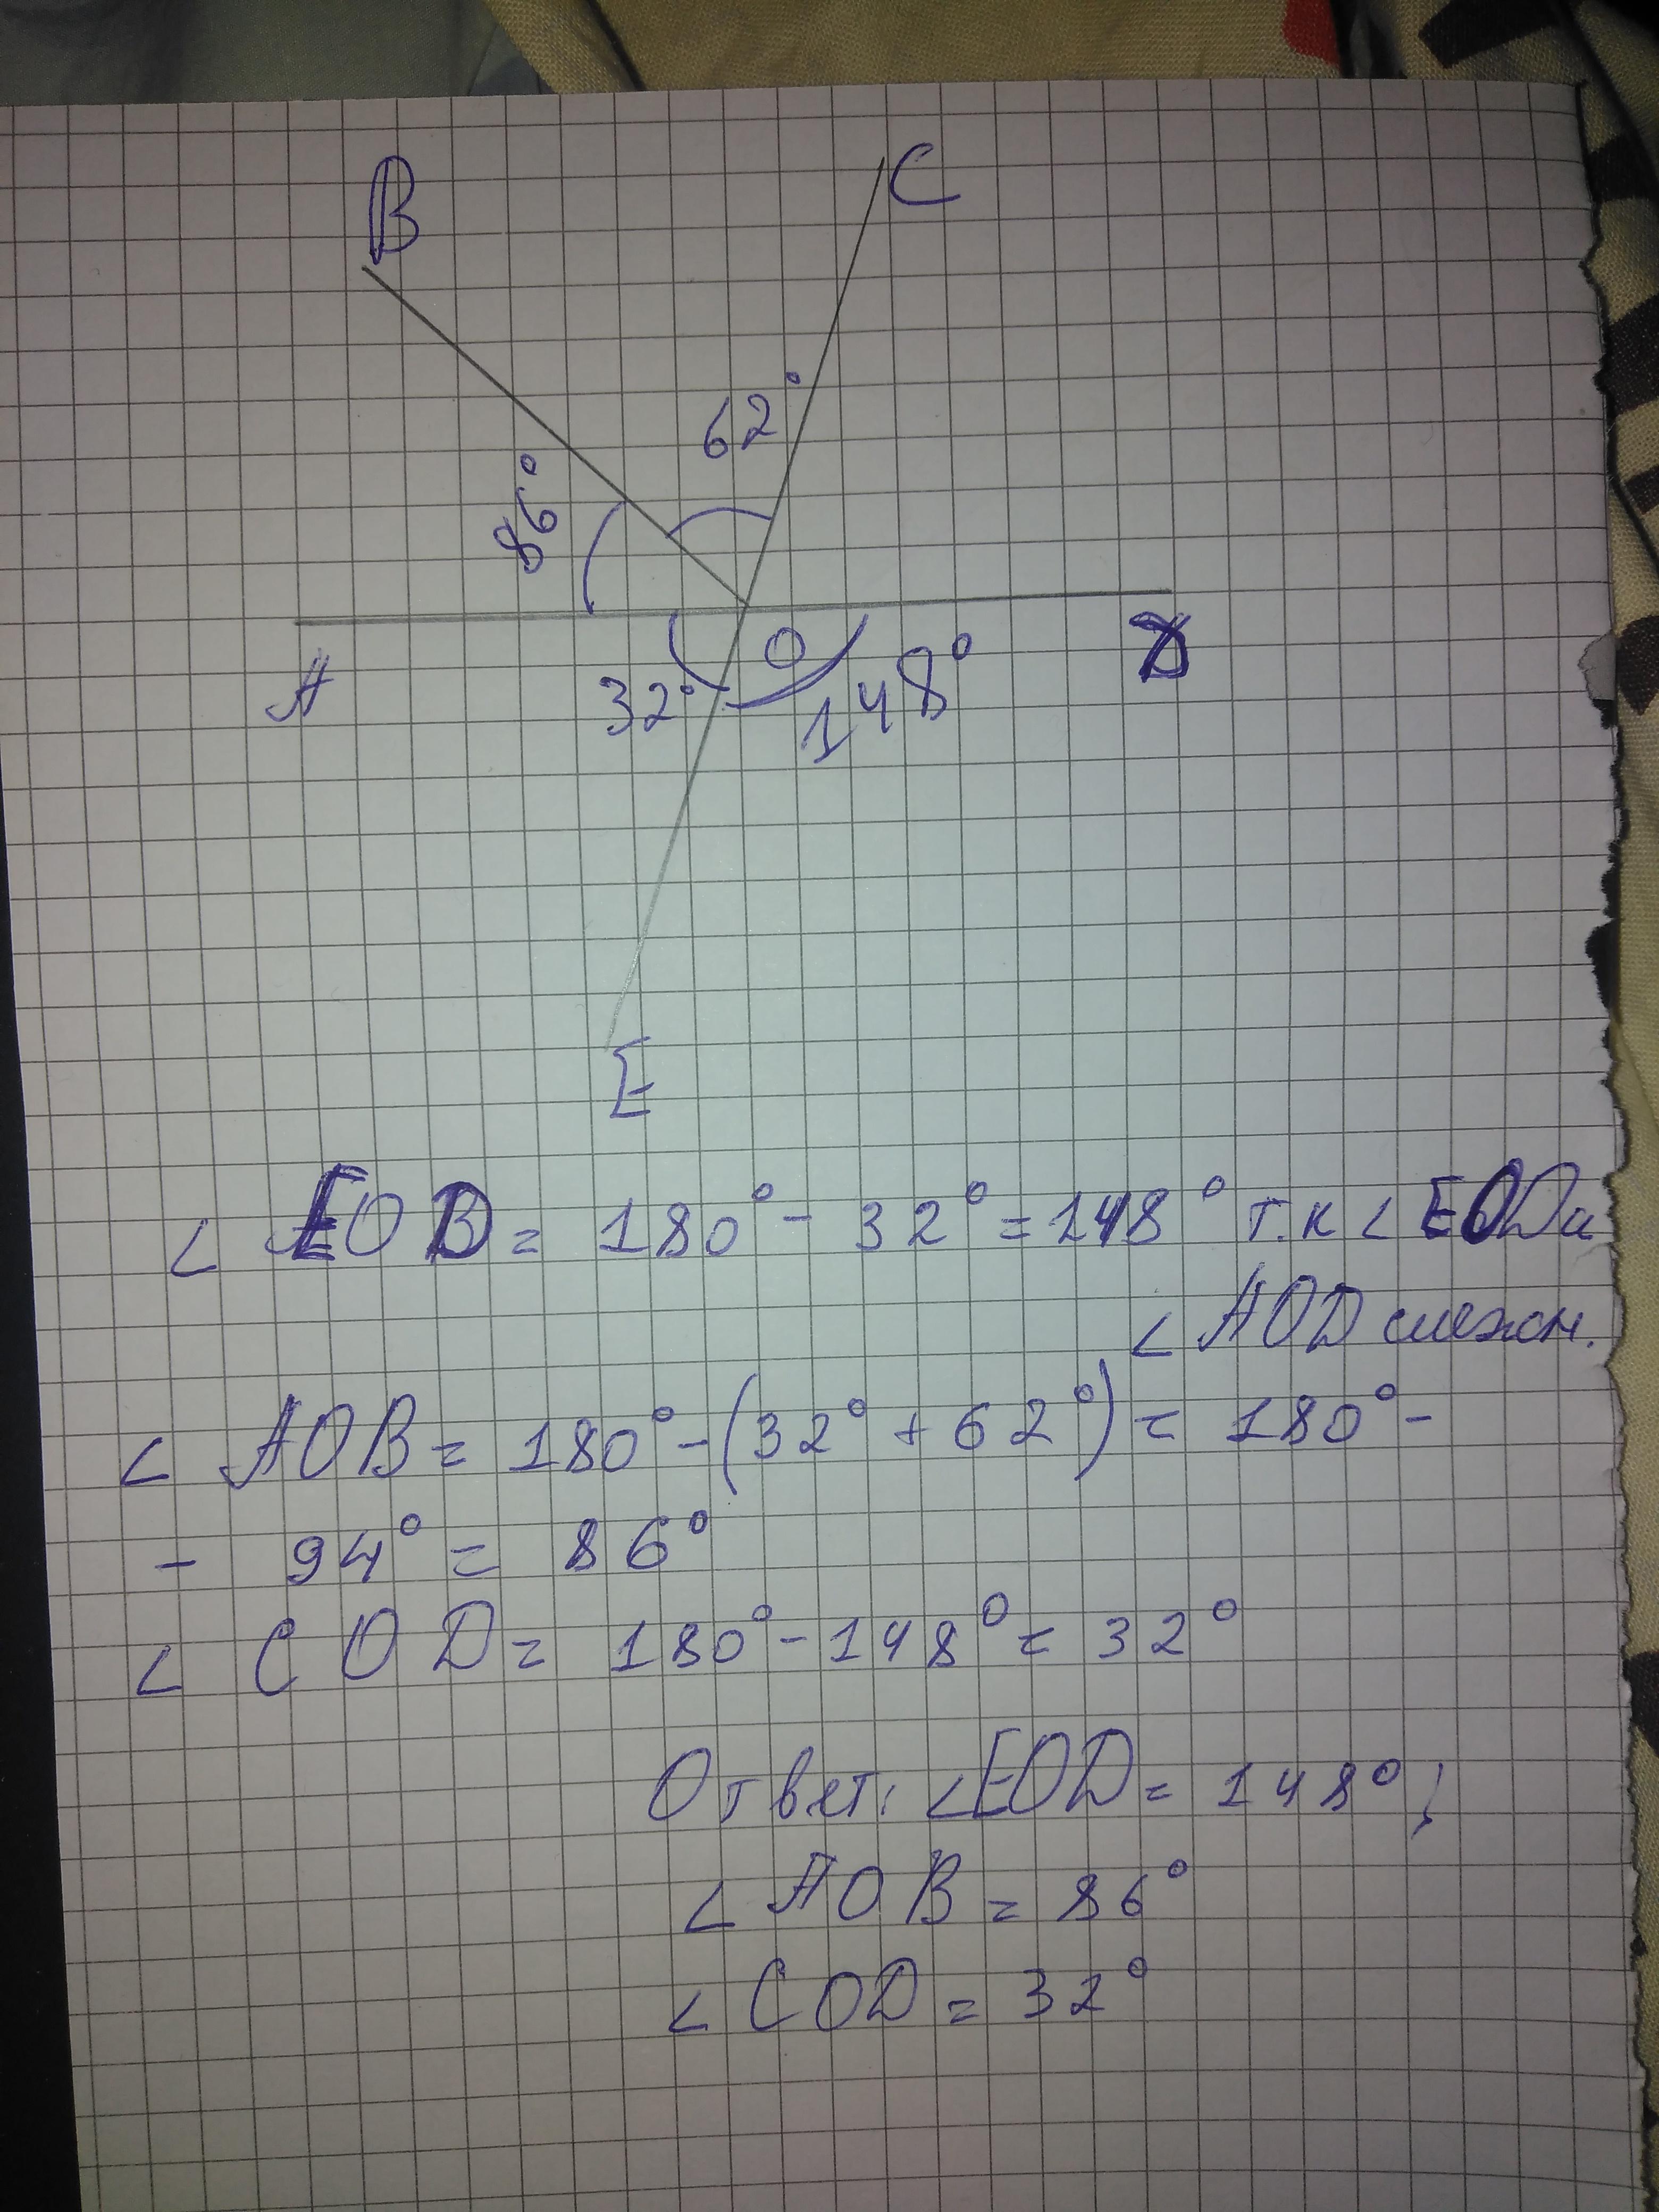 B
C
62°
86°
O
A
32°
148°
D
E
∠ EOD = 180° - 32° = 148° т.к ∠ EOD и
∠ AOD смежн.
∠ AOB = 180° - (32° + 62°) = 180° -
- 94° = 86°
∠ COD = 180° - 148° = 32°
Ответ: ∠EOD = 148°;
∠ AOB = 86°
∠ COD = 32°